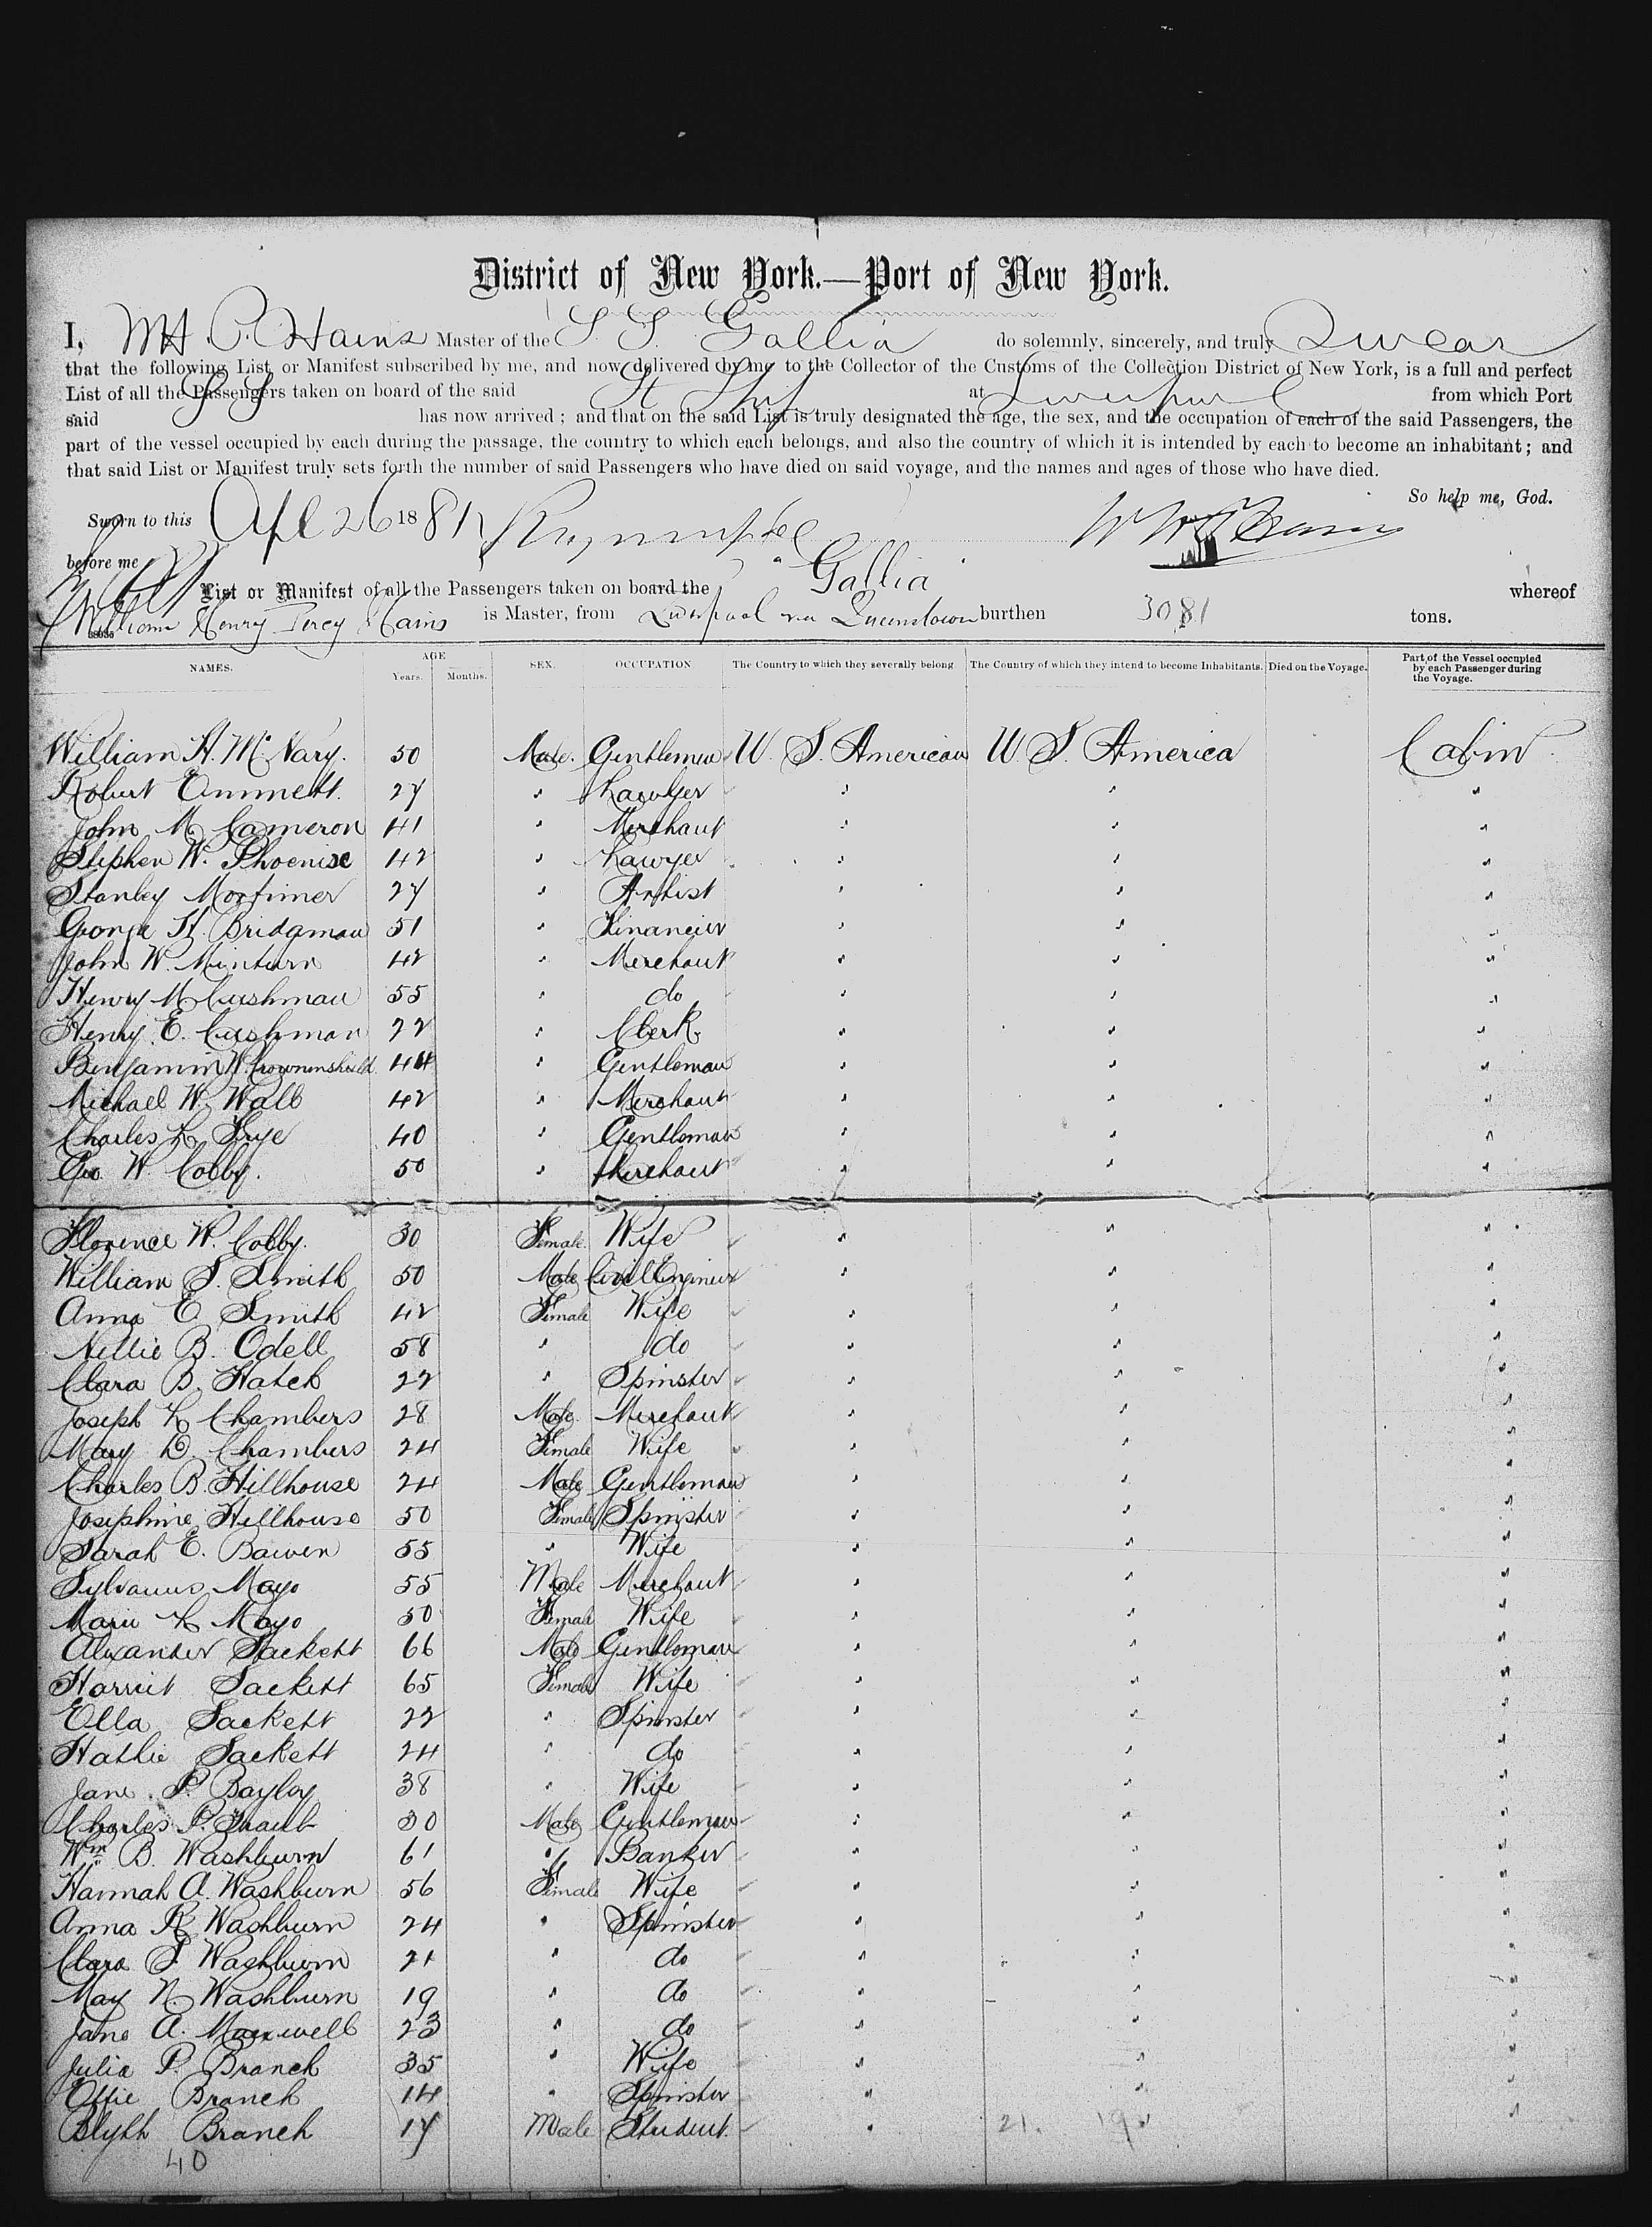 District of New York.—Port of New York.
I, W H P. Hains Master of the S. S. Gallia do solemnly, sincerely, and truly Swear
that the following List or Manifest subscribed by me, and now delivered by me to the Collector of the Customs of the Collection District of New York, is a full and perfect
List of all the Passengers taken on board of the said S S at Liverpool from which Port
said St Ship has now arrived; and that on the said List is truly designated the age, the sex, and the occupation of each of the said Passengers, the
part of the vessel occupied by each during the passage, the country to which each belongs, and also the country of which it is intended by each to become an inhabitant; and
that said List or Manifest truly sets forth the number of said Passengers who have died on said voyage, and the names and ages of those who have died.
So help me, God.
Sworn to this Apl 26 1881
before me
List or Manifest of all the Passengers taken on board the Gallia whereof
William Henry Percy Hains is Master, from Liverpool via Queenstown burthen 3081 tons.
NAMES. AGE Years. Months. SEX. OCCUPATION The Country to which they severally belong The Country of which they intend to become Inhabitants. Died on the Voyage. Part of the Vessel occupied by each Passenger during the Voyage.
William H. McNary. 50 Male. Gentleman W. S. American W. S. America Cabin
Robert Emmett. 27 " Lawyer " " "
John M. Cameron 41 " Merchant " " "
Stephen W. Phoenise 42 " Lawyer " " "
Stanley Mortimer 27 " Artist " " "
George H. Bridgman 51 " Financier " " "
John W. Minturn 42 " Merchant " " "
Henry M. Cushman 55 " do " " "
Henry E. Cushman 22 " Clerk " " "
Benjamin W. Crowninshield 44 " Gentleman " " "
Michael W. Wall 42 " Merchant " " "
Charles L. Frye 40 " Gentleman " " "
Geo W. Cobby. 50 " Merchant " " "
Florence W. Cobby. 30 Female. Wife " " "
William S. Smith 50 Male Civil Engineer " " "
Anna E Smith 42 Female Wife " " "
Nellie B. Odell 58 " do " " "
Clara B. Hatch 22 " Spinster " " "
Joseph L Chambers 28 Male. Merchant " " "
Mary D. Chambers 24 Female Wife " " "
Charles B. Hillhouse 24 Male Gentleman " " "
Josephine Hillhouse 50 Female Spinster " " "
Sarah E. Bowen 55 " Wife " " "
Sylvanus Mayo 55 Male Merchant " " "
Marie L Mayo 50 Female Wife " " "
Alexander Sackett 66 Male Gentleman " " "
Harriet Sackett 65 Female Wife " " "
Ella Sackett 22 " Spinster " " "
Hattie Sackett 24 " do " " "
Jane P. Bayley 38 " Wife " " "
Charles P. 30 Male Gentleman " " "
Wm B. Washburn 61 " Banker " " "
Hannah A. Washburn 56 Female Wife " " "
Anna R Washburn 24 " Spinster " " "
Clara S. Washburn 21 " do " " "
May N. Washburn 19 " do " " "
Jane A. Maxwell 23 " do " " "
Julia P. Branch 35 " Wife " " "
Effie Branch 14 " Spinster " " "
Blyth Branch 17 Male Student. " 21. 19 " "
40